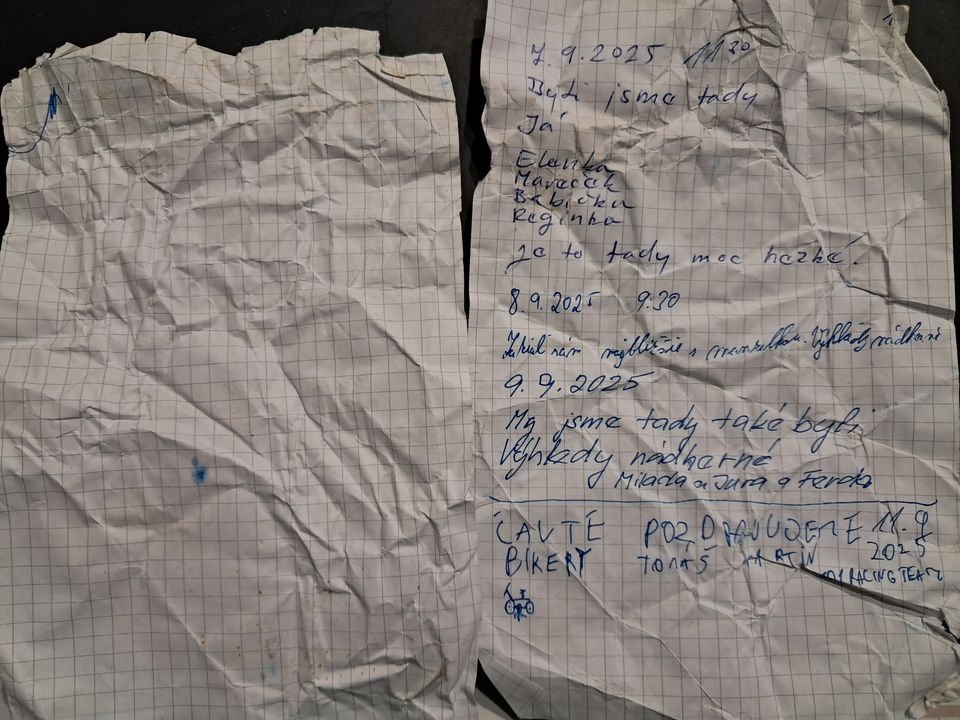 1
7.9.2025 11 30
Byli jsme tady
Já
Elenka
Mareček
Babička
Reginka
je to tady moc hezké.
8.9.2025 9:30
s manželkou. Výhledy nádherné
9.9.2025
My jsme tady také byli
Výhledy nádherné
Milada a Jura a Ferda
ČAVTE POZDRAVUJEME 11.9
BIKERY TOMÁŠ MARTIN 2025
RACING TEAM